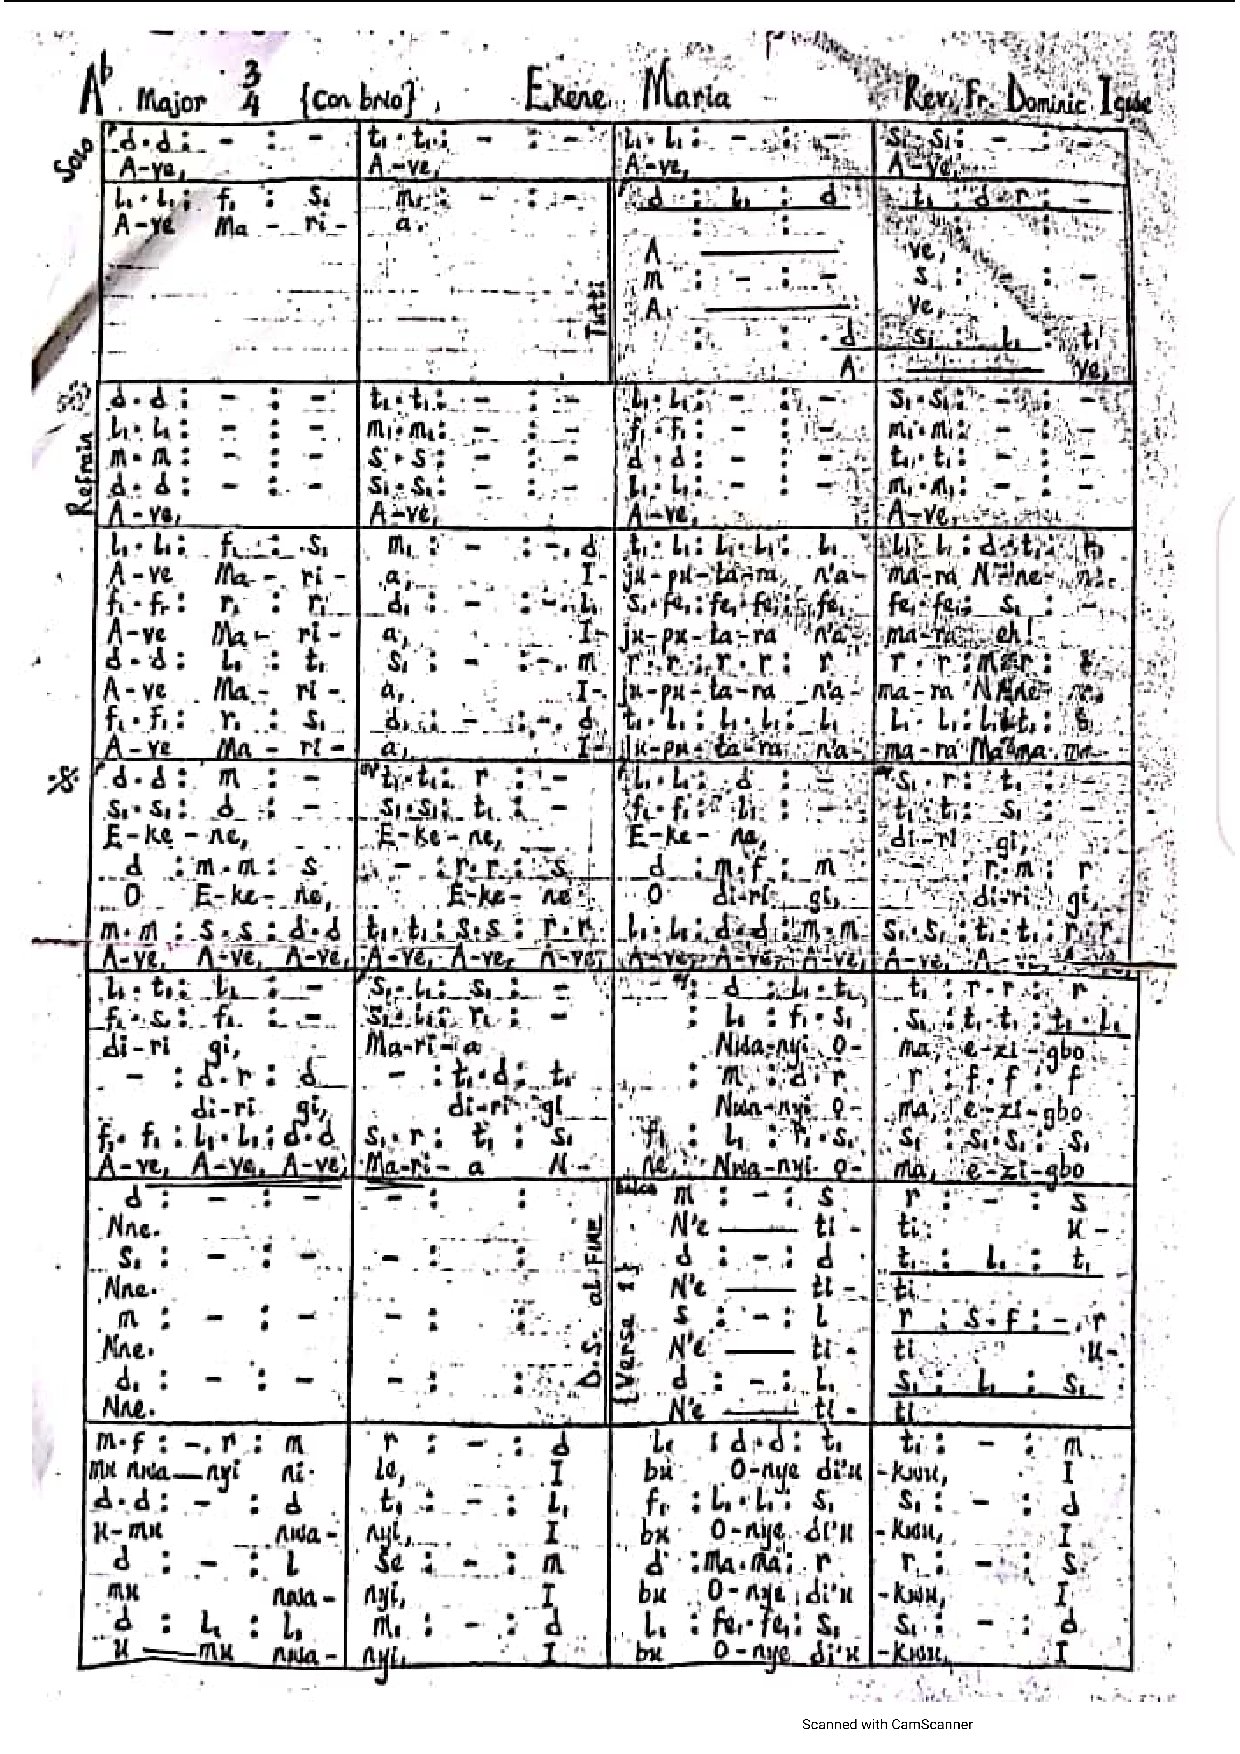 A♭ Major 3/4 {Con brio}, Ekene Maria Rev. Fr. Dominic Igwe
Solo
d.d : - : - | t₁.t₁ : - : - | l₁.l₁ : - : - | s₁.s₁ : - : -
A-ve, A-ve, A-ve, A-ve,
l₁.l₁ : f₁ : s₁ | m₁ : - : - | d : l₁ : d | t₁ : d.r : -
A-ve Ma - ri - a.
A ve,
m : - : - | s : - : -
Tutti
A ve,
.d | s₁ : l₁ : t₁
A ve,
Refrain
d.d : - : - | t₁.t₁ : - : - | l₁.l₁ : - : - | s₁.s₁ : - : -
l₁.l₁ : - : - | m₁.m₁ : - : - | f₁.f₁ : - : - | m₁.m₁ : - : -
m.m : - : - | s.s : - : - | d.d : - : - | t₁.t₁ : - : -
d.d : - : - | s₁.s₁ : - : - | l₁.l₁ : - : - | m₁.m₁ : - : -
A-ve, A-ve, A-ve, A-ve,
l₁.l₁ : f₁ : s₁ | m₁ : - : -.d | t₁.l₁ : l₁.l₁ : l₁ | l₁.l₁ : d.t₁ :
A-ve Ma - ri - a, I- ju-pu-ta-ra n'a- ma-ra N-ne-
f₁.f₁ : r₁ : r₁ | d₁ : - : -.l₁ | s₁.fe₁ : fe₁.fe₁ : fe₁ | fe₁.fe₁ : s₁ : -
A-ve Ma - ri - a, I- ju-pu-ta-ra n'a- ma-ra eh!
d.d : l₁ : t₁ | s₁ : - : -.m | r.r : r.r : r | r.r : m.r :
A-ve Ma - ri - a, I- ju-pu-ta-ra n'a- ma-ra
f₁.f₁ : r₁ : s₁ | d₁ : - : -.d | t₁.l₁ : l₁.l₁ : l₁ | l₁.l₁ :
A-ve Ma - ri - a, I- ju-pu-ta-ra n'a- ma-ra
d.d : m : - | t₁.t₁ : r : - | l₁.l₁ : d : - | s₁.r : t₁ : -
s₁.s₁ : d : - | s₁.s₁ : t₁ : - | f₁.f₁ : l₁ : - | t₁.t₁ : s₁ : -
E-ke-ne, E-ke-ne, E-ke-ne, di-ri gi,
d : m.m : s | - : r.r : s | d : m.f : m | - : r.m : r
O E-ke-ne, E-ke-ne O di-ri gi, di-ri gi,
m.m : s.s : d.d | t₁.t₁ : s.s : r.r | l₁.l₁ : d.d : m.m | s₁.s₁ : t₁.t₁ : r.r
A-ve, A-ve, A-ve, A-ve, A-ve, A-ve, A-ve, A-ve, A-ve, A-ve,
l₁.t₁ : l₁ : - | s₁.l₁ : s₁ : - | : d : l₁.t₁ | t₁ : r.r : r
f₁.s₁ : f₁ : - | s₁.l₁ : r₁ : - | : l₁ : f₁.s₁ | s₁ : t₁.t₁ : t₁.l₁
di-ri gi, Ma-ri-a Nwa-nyi O- ma, e-zi-gbo
- : d.r : d | - : t₁.d : t₁ | : m : d.r | r : f.f : f
di-ri gi, di-ri gi Nwa-nyi O- ma, e-zi-gbo
f₁.f₁ : l₁.l₁ : d.d | s₁.r : t₁ : s₁ | f₁ : l₁ : f₁.s₁ | s₁ : s₁.s₁ : s₁
A-ve, A-ve, A-ve, Ma-ri-a N- ne, Nwa-nyi O- ma, e-zi-gbo
d : - : - | - : : | m : - : s | r : - : s
Nne. N'e ti - ti: ụ -
s₁ : - : - | - : : | d : - : d | t₁ : l₁ : t₁
Nne. N'e ti - ti
D.S. al FINE
{Verse 1}
m : - : - | - : : | s : - : l | r : s.f : -.r
Nne. N'e ti - ti ụ-
d₁ : - : - | - : : | d : - : l₁ | s₁ : l₁ : s₁
Nne. N'e ti - ti
m.f : -.r : m | r : - : d | l₁ : d.d : t₁ | t₁ : - : m
mụ nwa-nyi ni- le, I bụ O-nye di'ụ -kwu, I
d.d : - : d | t₁ : - : l₁ | f₁ : l₁.l₁ : s₁ | s₁ : - : d
ụ-mụ nwa- nyi, I bụ O-nye di'ụ -kwu, I
d : - : l | se : - : m | d : ma.ma : r | r : - : s
mụ nwa- nyi, I bụ O-nye di'ụ -kwu, I
d : l₁ : l₁ | m₁ : - : d | l₁ : fe₁.fe₁ : s₁ | s₁ : - : d
ụ mụ nwa- nyi, I bụ O-nye di'ụ -kwu, I
Scanned with CamScanner